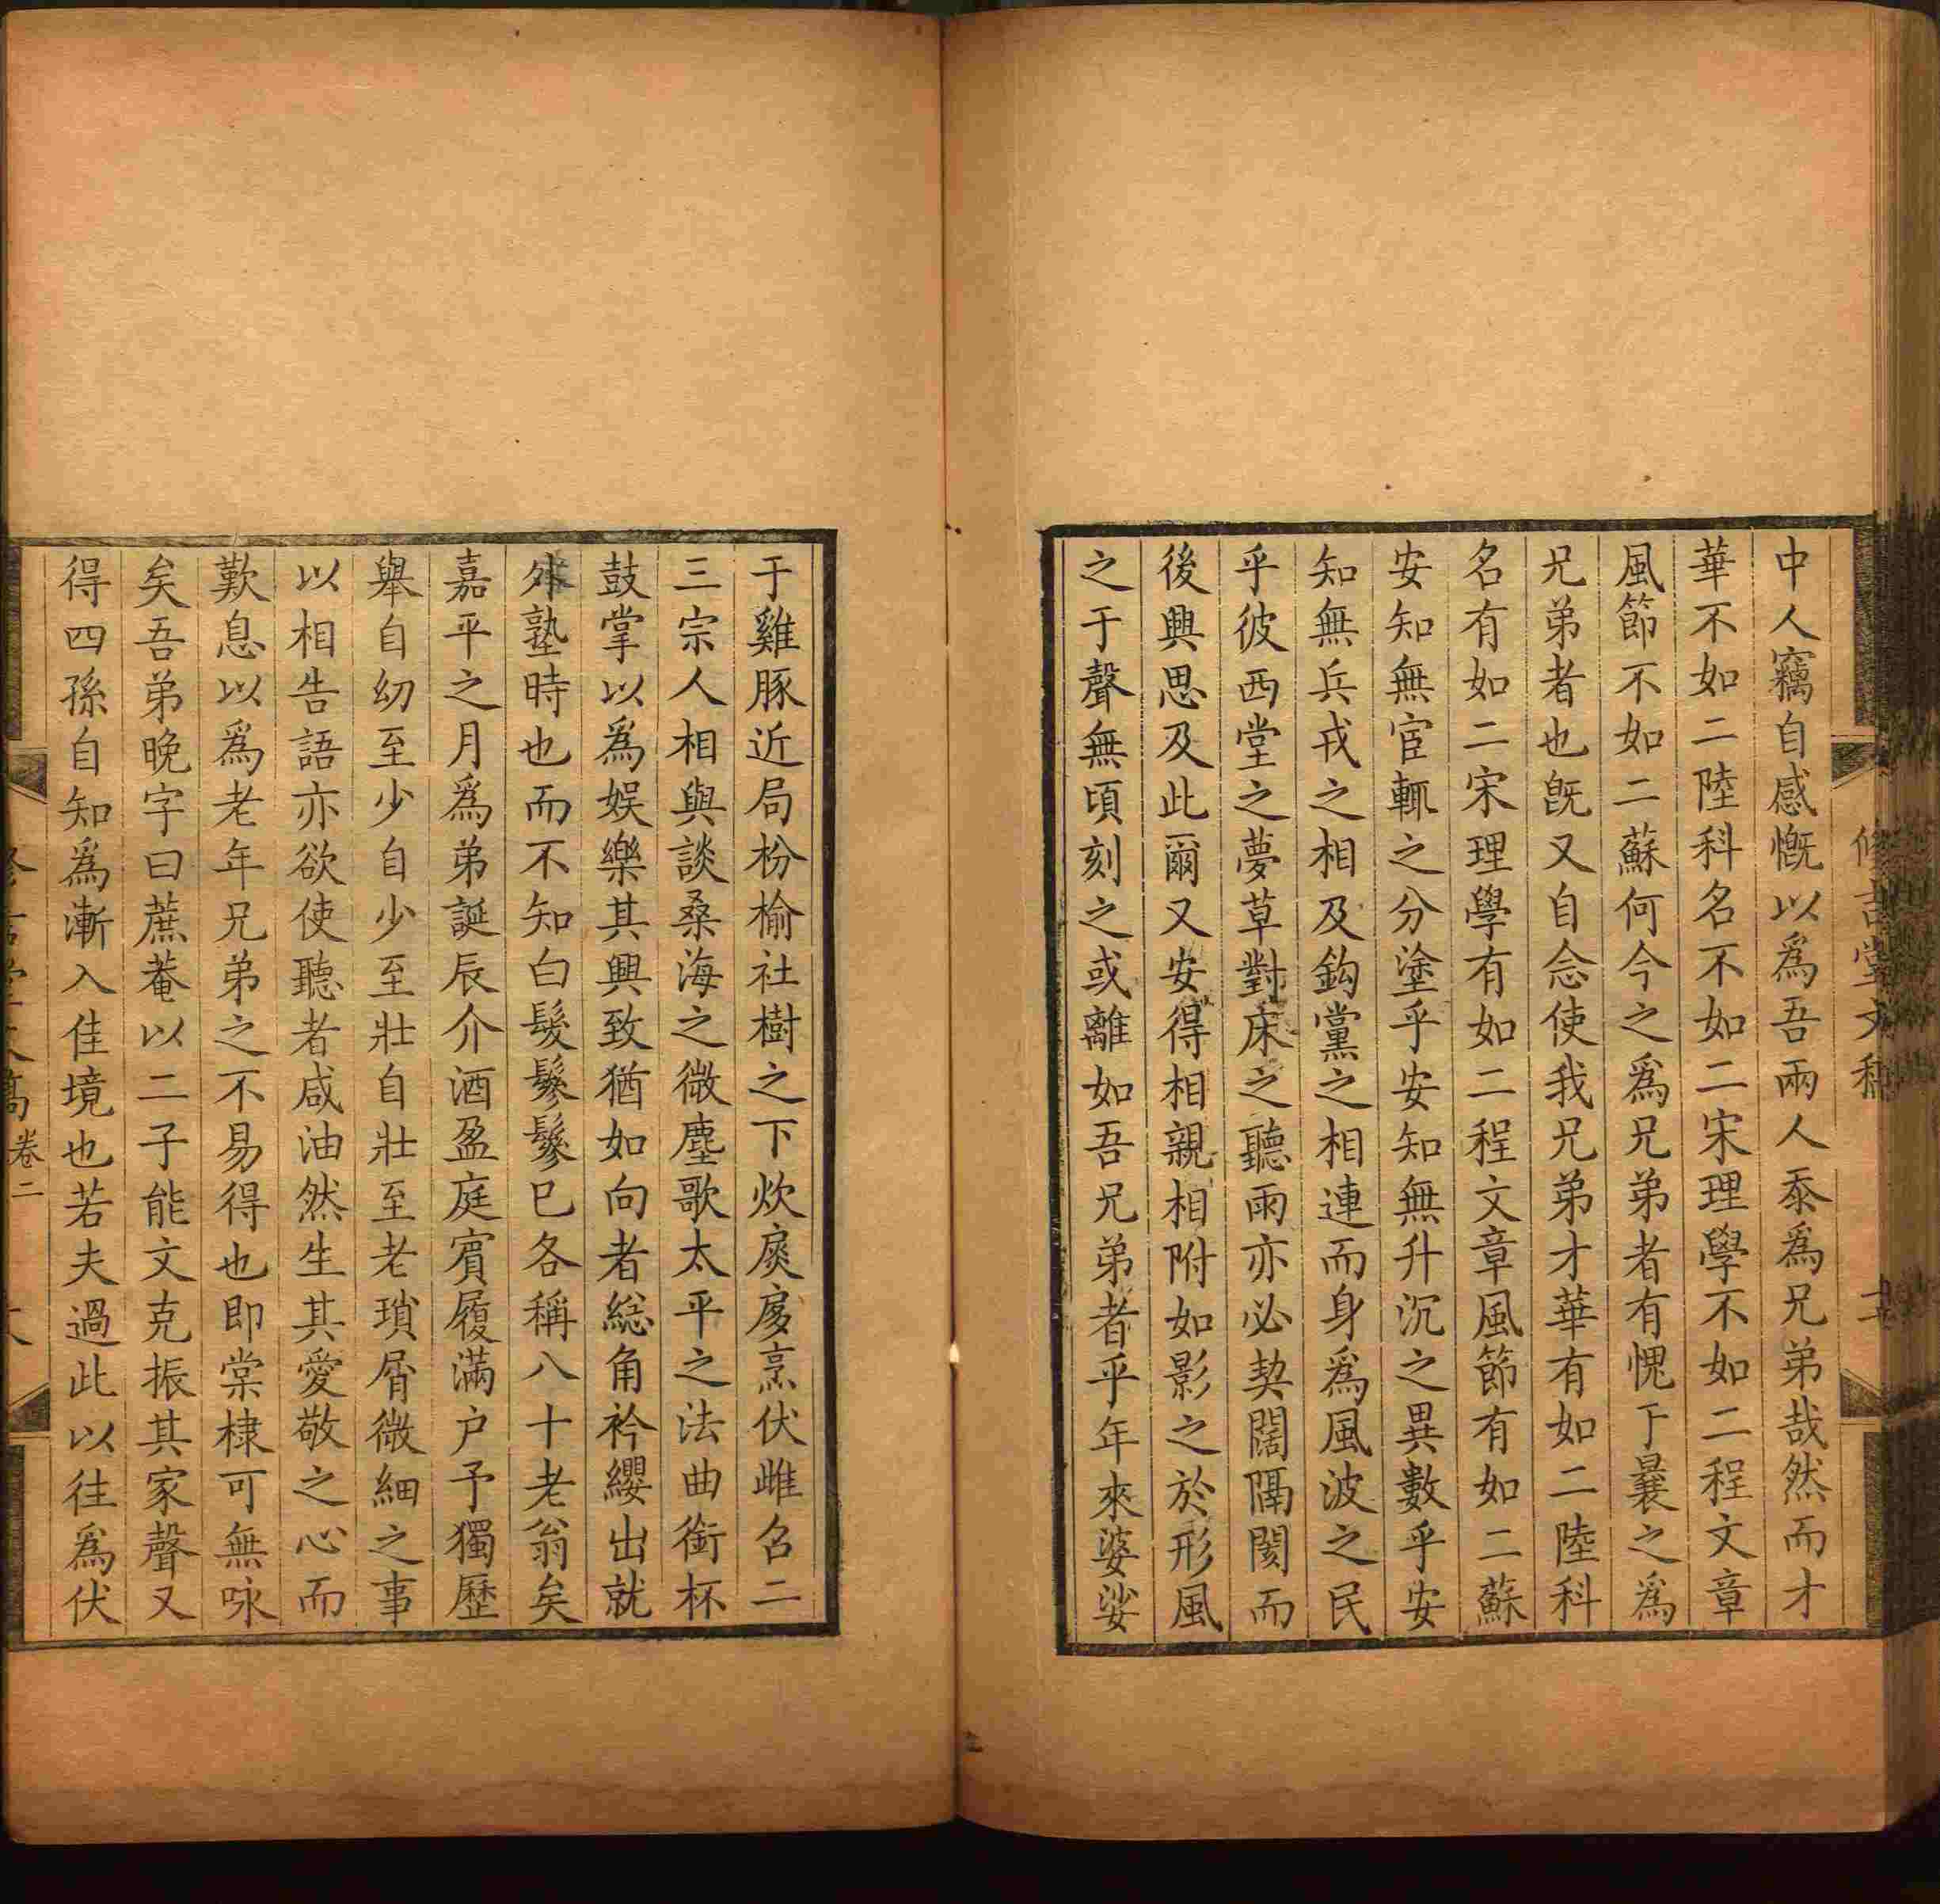 中人竊自感慨以爲吾兩人忝爲兄弟哉然而才
華不如二陸科名不如二宋理學不如二程文章
風節不如二蘇何今之爲兄弟者有愧于曩之爲
兄弟者也旣又自念使我兄弟才華有如二陸科
名有如二宋理學有如二程文章風節有如二蘇
安知無宦輒之分塗乎安知無升沉之異數乎安
知無兵戎之相及鈎黨之相連而身爲風波之民
乎彼西堂之夢草對床之聽雨亦必契闊隔閡而
後興思及此爾又安得相親相附如影之於形風
之于聲無頃刻之或離如吾兄弟者乎年來婆娑
于雞豚近局枌榆社樹之下炊扊扅烹伏雌召二
三宗人相與談桑海之微塵歌太平之法曲銜杯
鼓掌以爲娛樂其興致猶如向者總角衿纓出就
外塾時也而不知白髮鬖鬖巳各稱八十老翁矣
嘉平之月爲弟誕辰介酒盈庭賓履滿户予獨歷
舉自幼至少自少至壯自壯至老瑣屑微細之事
以相告語亦欲使聽者咸油然生其愛敬之心而
歎息以爲老年兄弟之不易得也即棠棣可無咏
矣吾弟晚字曰蔗菴以二子能文克振其家聲又
得四孫自知爲漸入佳境也若夫過此以往爲伏
堂文稿 卷二